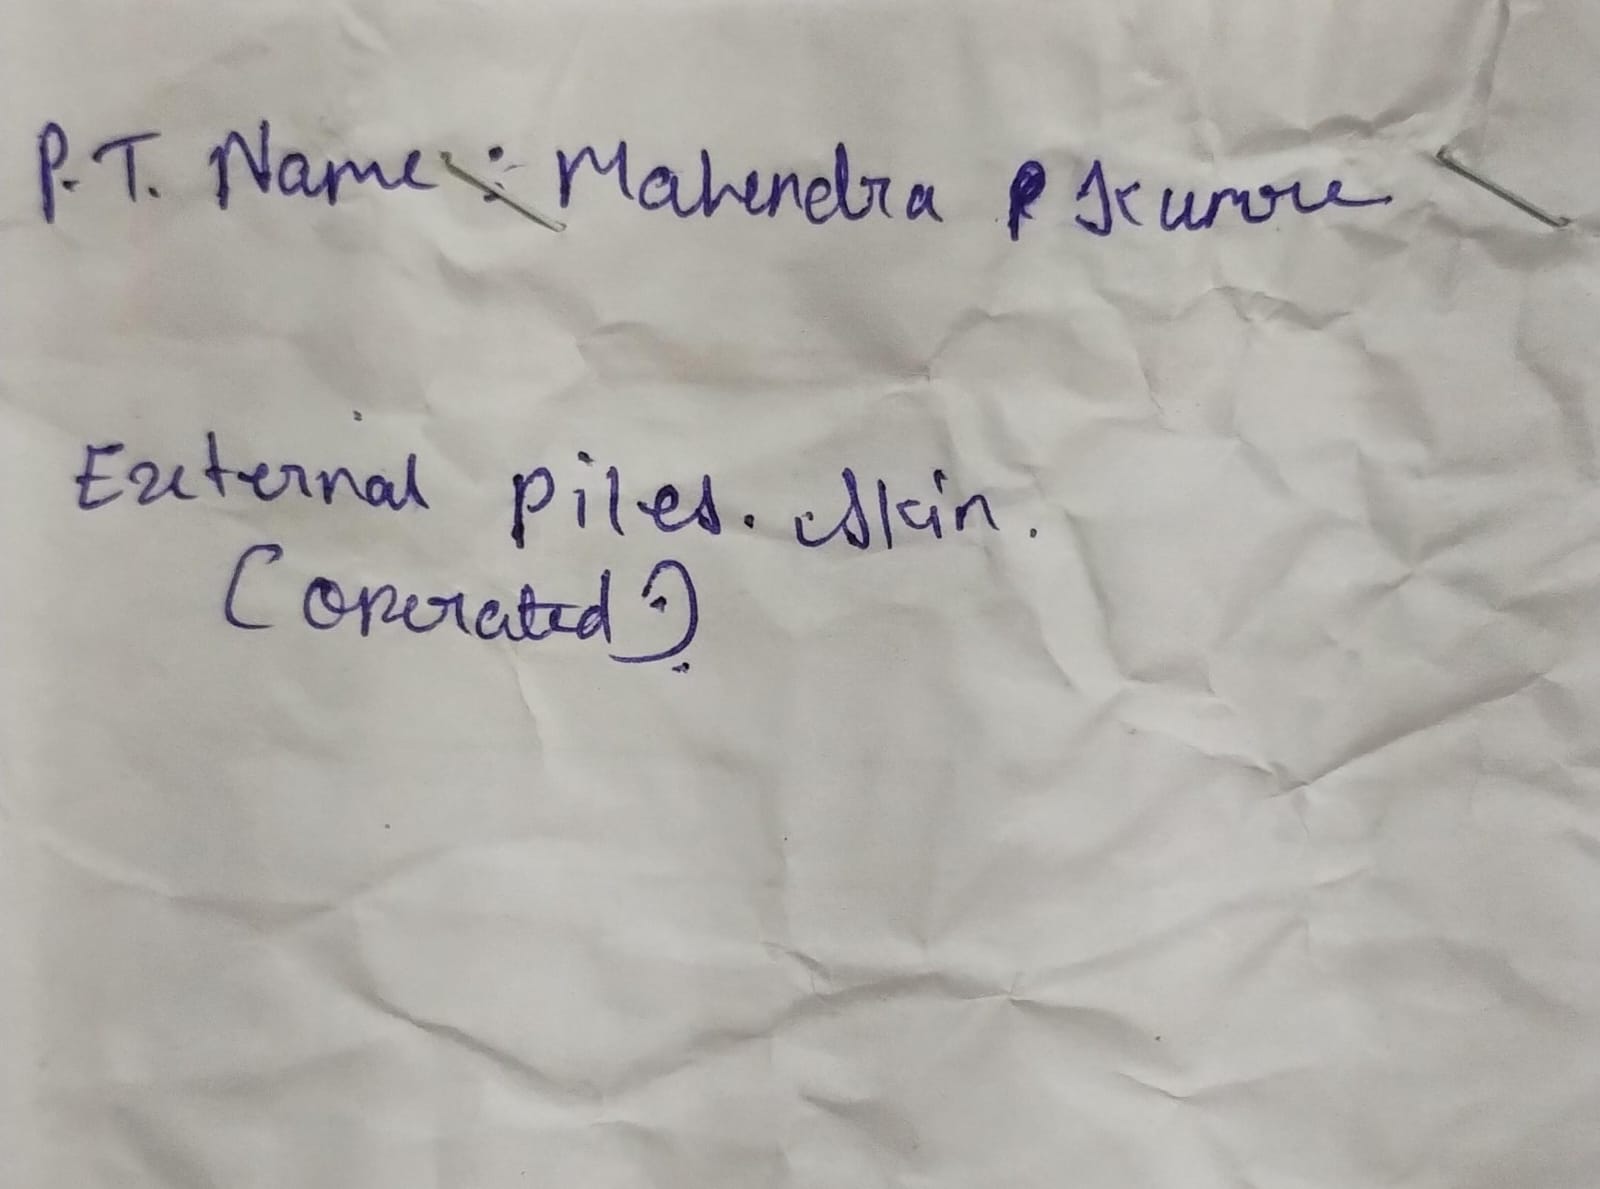 P.T. Name : Mahendra P Kumre
External piles. skin.
(operated?)